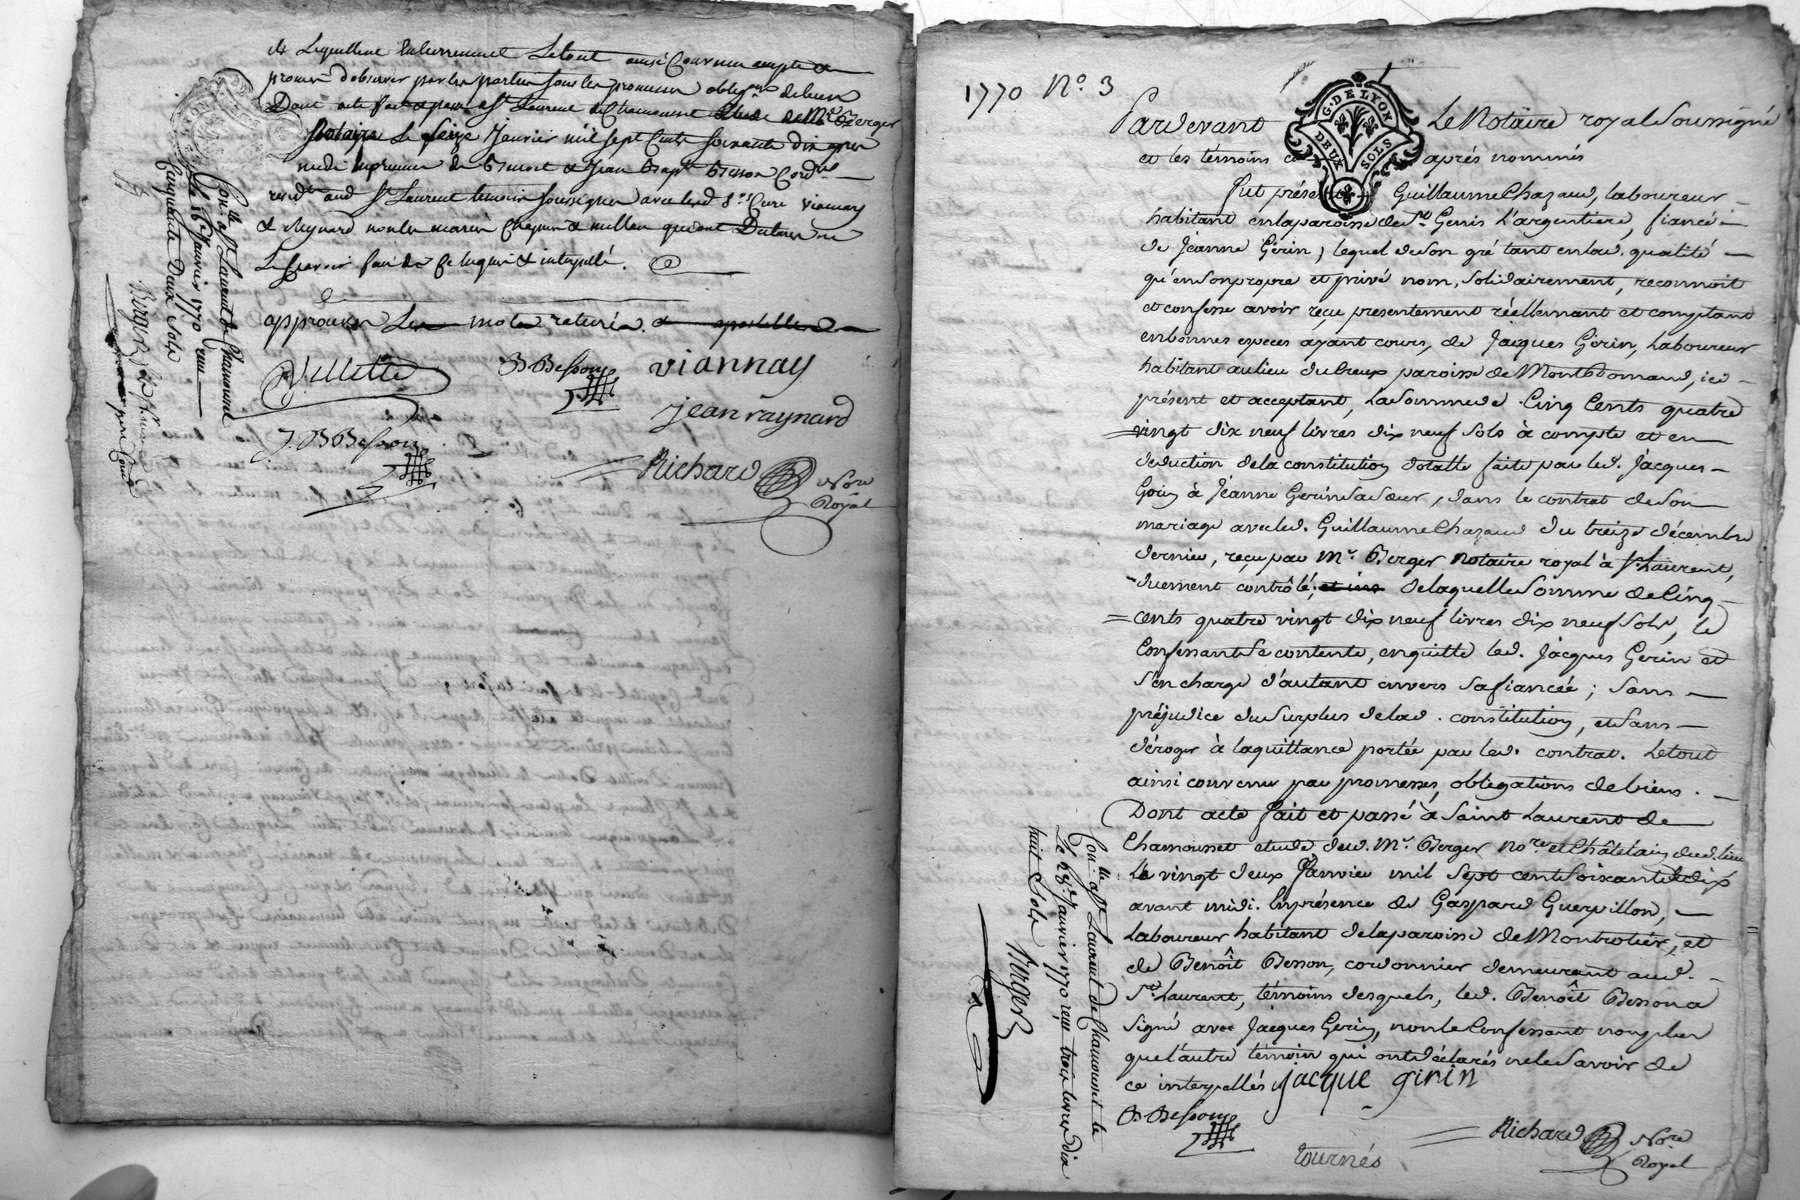 et Lequellene Enterrement Le tout ainsi Convenu accepté &
promis d'observer par les parties sous les promesses oblig.ons de biens
Dont acte fait & passé a St Laurent de Chamousset Etude de Mre Berger
Notaire Le seize Janvier mil sept Cents soixante dix apres
midi En presence de Benoit & Jean Bapt.e Besson Cord.rs
resid.t aud St Laurent temoins soussignes avec led S.r Curé viannay
& Reynard non les mariés Chepier & millon qui ont Declaré ne
Le sçavoir faire de Ce Enquis & interpellé.
approuvon Les mots raturés. & apostilles
Villette
B Besson
viannay
jean raynard
J. B Besson
Richard Nore
Royal
Con.lle a St. Laurent de Chamousset
Le 16e Janvier 1770 reçu
Cinquante Deux Sols
Berger
1770 N.o 3
G. DE LYON
DEUX SOLS
Pardevant Le Notaire royal Soussigné
et les témoins aprés nommés
fut présent Guillaume Chazaud, laboureur
habitant en la paroisse de St. Genis L'argentiere, fiancé
de Jeanne Gérin, lequel de son gré tant en lad. qualité
qu'en son propre et privé nom, solidairement, reconnoit
et confesse avoir reçu presentement réellemant et comptant
en bonnes especes ayant cours, de Jacques Gerin, Laboureur
habitant au lieu du Creux paroisse de Montromand, ici
présent et acceptant, La Somme de Cinq Cents quatre
vingt dix neuf livres dix neuf sols à compte et en
deduction de la constitution dotalle faite par led. Jacques
Gerin à Jéanne Gerin Sa Sœur, dans le contrat de Son
mariage avec led. Guillaume Chazaud du treize décembre
dernier, reçu par Mr. Berger Notaire royal à St. Laurent,
duement contrôlé; de laquelle Somme de Cinq
cents quatre vingt dix neuf livres dix neuf Sols, le
Confessant Se contente, en quitte led. Jacques Gerin et
s'en charge d'autant envers Sa fiancée; Sans
préjudice du Surplus de lad. constitution, et Sans
déroger à la quittance portée par led. contrat. Le tout
ainsi convenu par promesses, obligations de biens.
Dont acte fait et passé à Saint Laurent de
Chamousset etude dud. Mr. Berger No.re et Châtelain dud. lieu
Le vingt deux Janvier mil Sept cent Soixante et dix
avant midi. En présence de Gaspard Guerpillon,
Laboureur habitant de la paroisse de Montrotier, et
de Benoît Besson, cordonnier demeurant aud.
St. Laurent, témoins desquels, led. Benoît Besson a
Signé avec Jacques Gerin, non le Confessant non plus
que l'autre témoin qui ont déclarés ne le Savoir de
ce interpellés jacque girin
B Besson
Richard Nore
Royal
tournés
Con.lle a St. Laurent de Chamousset le
Le 28e. Janvier 1770 reçu trois livres dix
huit Sols Berger